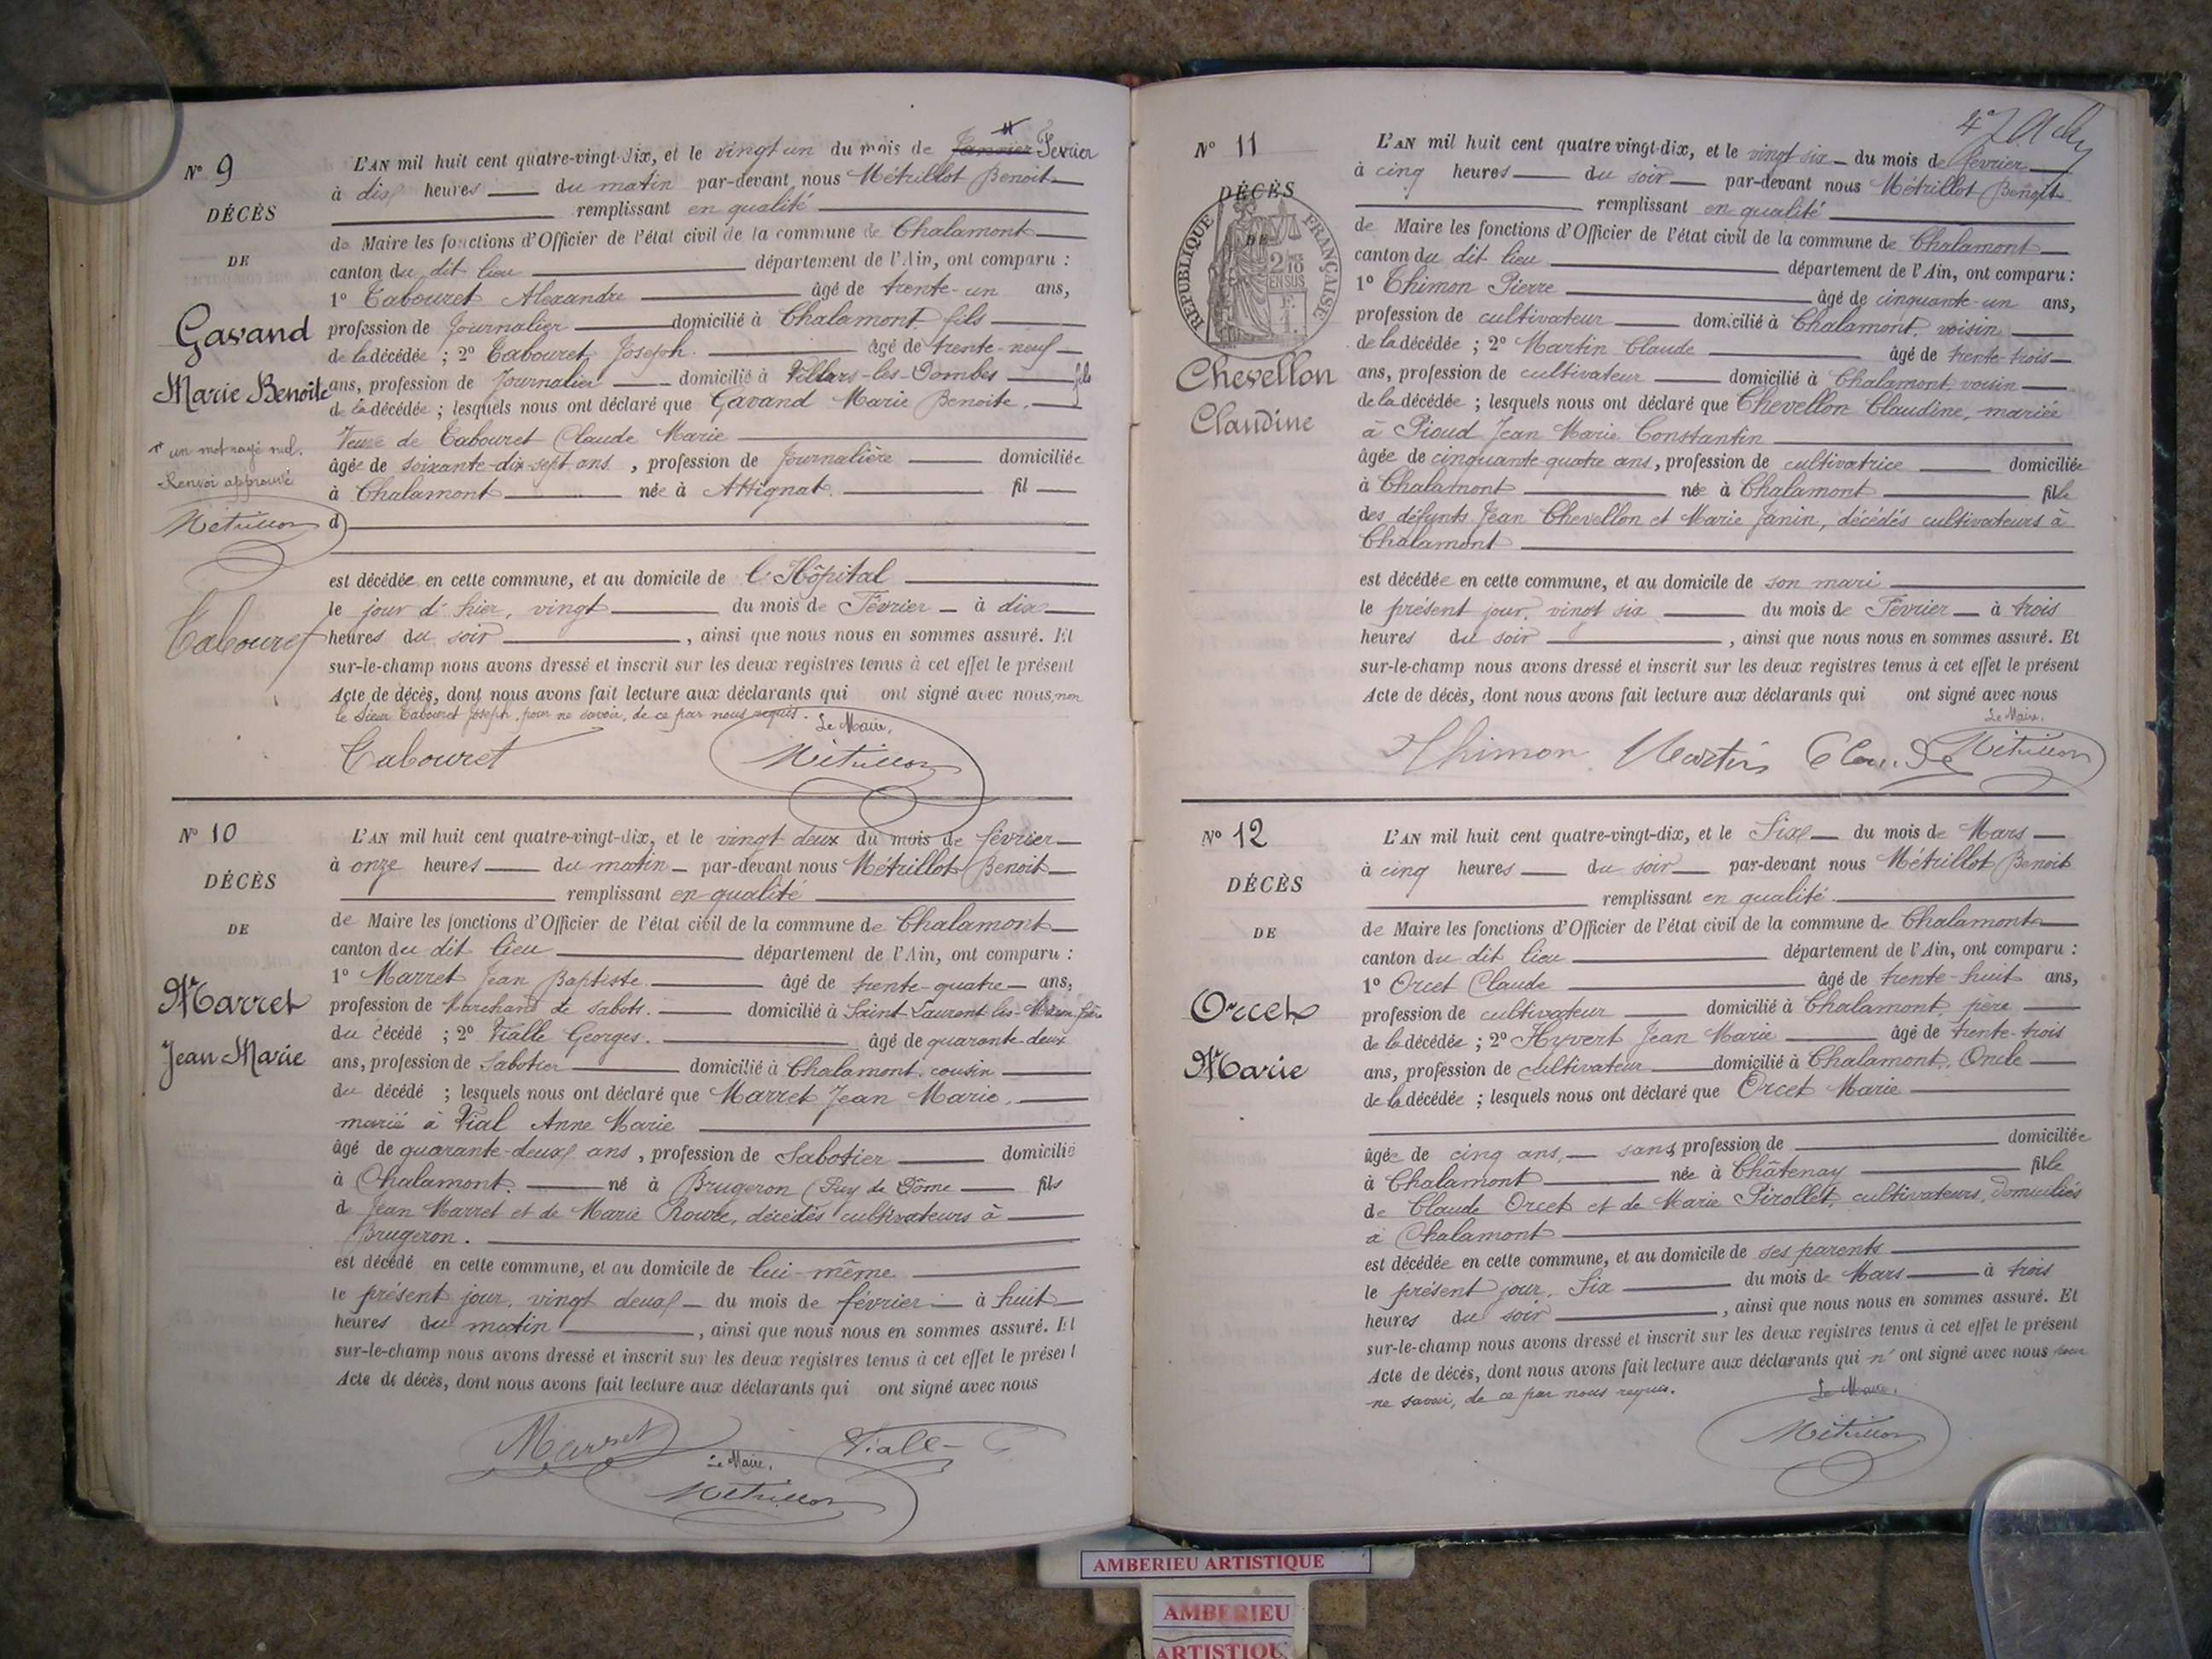 N° 9
DÉCÈS
DE
Gavand
Marie Benoite
+ un mot rayé nul.
Renvoi approuvé
Métrillot
Tabouret
L'AN mil huit cent quatre-vingt-dix, et le vingt un du mois de Janvier Fevrier
à dix heures du matin par-devant nous Métrillot Benoit
remplissant en qualité
de Maire les fonctions d'Officier de l'état civil de la commune de Chalamont
canton du dit lieu département de l'Ain, ont comparu :
1° Tabouret Alexandre âgé de trente-un ans,
profession de Journalier domicilié à Chalamont, fils
de la décédée ; 2° Tabouret Joseph. âgé de trente-neuf
ans, profession de Journalier domicilié à Villars-les-Dombes fils
de la décédée ; lesquels nous ont déclaré que Gavand Marie Benoite,
Veuve de Tabouret Claude Marie
âgée de soixante-dix-sept ans, profession de Journalière domiciliée
à Chalamont née à Attignat. fil
d
est décédée en cette commune, et au domicile de l'Hôpital
le jour d'hier, vingt du mois de Février à dix
heures du soir, ainsi que nous nous en sommes assuré. Et
sur-le-champ nous avons dressé et inscrit sur les deux registres tenus à cet effet le présent
Acte de décès, dont nous avons fait lecture aux déclarants qui ont signé avec nous, non
le Sieur Tabouret Joseph, pour ne savoir, de ce par nous requis.
Le Maire,
Tabouret Métrillot
N° 10
DÉCÈS
DE
Marret
Jean Marie
L'AN mil huit cent quatre-vingt-dix, et le vingt deux du mois de février
à onze heures du matin par-devant nous Métrillot Benoit
remplissant en qualité
de Maire les fonctions d'Officier de l'état civil de la commune de Chalamont
canton du dit lieu département de l'Ain, ont comparu :
1° Marret Jean Baptiste. âgé de trente-quatre ans,
profession de Marchand de sabots. domicilié à Saint-Laurent-les-Mâcon, frère
du décédé ; 2° Vialle Georges. âgé de quarante-deux
ans, profession de Sabotier domicilié à Chalamont, cousin
du décédé ; lesquels nous ont déclaré que Marret Jean Marie,
marié à Vial Anne Marie
âgé de quarante-deux ans, profession de Sabotier domicilié
à Chalamont. né à Brugeron (Puy de Dôme fils
de Jean Marret et de Marie Roure, décédés cultivateurs à
Brugeron.
est décédé en cette commune, et au domicile de lui-même
le présent jour, vingt deux du mois de février à huit
heures du matin, ainsi que nous nous en sommes assuré. Et
sur-le-champ nous avons dressé et inscrit sur les deux registres tenus à cet effet le présent
Acte de décès, dont nous avons fait lecture aux déclarants qui ont signé avec nous
Marret Vialle
Le Maire,
Métrillot
N° 11
DÉCÈS
DE
RÉPUBLIQUE FRANÇAISE
2/10 EN SUS
Chevellon
Claudine
L'AN mil huit cent quatre vingt-dix, et le vingt six du mois de février
à cinq heures du soir par-devant nous Métrillot Benoit
remplissant en qualité
de Maire les fonctions d'Officier de l'état civil de la commune de Chalamont
canton du dit lieu département de l'Ain, ont comparu :
1° Thimon Pierre âgé de cinquante-un ans,
profession de cultivateur domicilié à Chalamont, voisin
de la décédée ; 2° Martin Claude âgé de trente-trois
ans, profession de cultivateur domicilié à Chalamont, voisin
de la décédée ; lesquels nous ont déclaré que Chevellon Claudine, mariée
à Pioud Jean Marie Constantin
âgée de cinquante-quatre ans, profession de cultivatrice domiciliée
à Chalamont née à Chalamont fille
des défunts Jean Chevellon et Marie Janin, décédés cultivateurs à
Chalamont
est décédée en cette commune, et au domicile de son mari
le présent jour, vingt six du mois de Février à trois
heures du soir, ainsi que nous nous en sommes assuré. Et
sur-le-champ nous avons dressé et inscrit sur les deux registres tenus à cet effet le présent
Acte de décès, dont nous avons fait lecture aux déclarants qui ont signé avec nous
Le Maire,
Thimon Martin Claude Métrillot
N° 12
DÉCÈS
DE
Orcet
Marie
L'AN mil huit cent quatre-vingt-dix, et le Six du mois de Mars
à cinq heures du soir par-devant nous Métrillot Benoit
remplissant en qualité
de Maire les fonctions d'Officier de l'état civil de la commune de Chalamont
canton du dit lieu département de l'Ain, ont comparu :
1° Orcet Claude âgé de trente-huit ans,
profession de cultivateur domicilié à Chalamont, père
de la décédée ; 2° Hyvert Jean Marie âgé de trente-trois
ans, profession de cultivateur domicilié à Chalamont, Oncle
de la décédée ; lesquels nous ont déclaré que Orcet Marie
âgée de cinq ans, sans profession de domiciliée
à Chalamont née à Châtenay fille
de Claude Orcet et de Marie Pirollet, cultivateurs, domiciliés
à Chalamont
est décédée en cette commune, et au domicile de ses parents
le présent jour, Six du mois de Mars à trois
heures du soir, ainsi que nous nous en sommes assuré. Et
sur-le-champ nous avons dressé et inscrit sur les deux registres tenus à cet effet le présent
Acte de décès, dont nous avons fait lecture aux déclarants qui n'ont signé avec nous pour
ne savoir, de ce par nous requis.
Le Maire,
Métrillot
AMBERIEU ARTISTIQUE
AMBERIEU
ARTISTIQUE